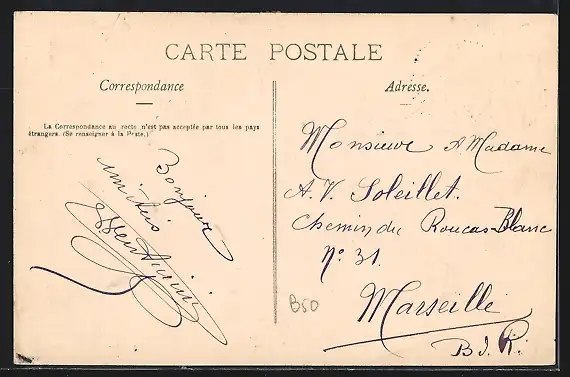 CARTE POSTALE
Correspondance
Adresse.
La Correspondance au recto n'est pas acceptée par tous les pays
étrangers. (Se renseigner à la Poste.)
Bonjour
Monsieur & Madame
A. V. Soleillet.
Chemin du Roucas-Blanc
N° 31.
Marseille
B. d. R.
B50